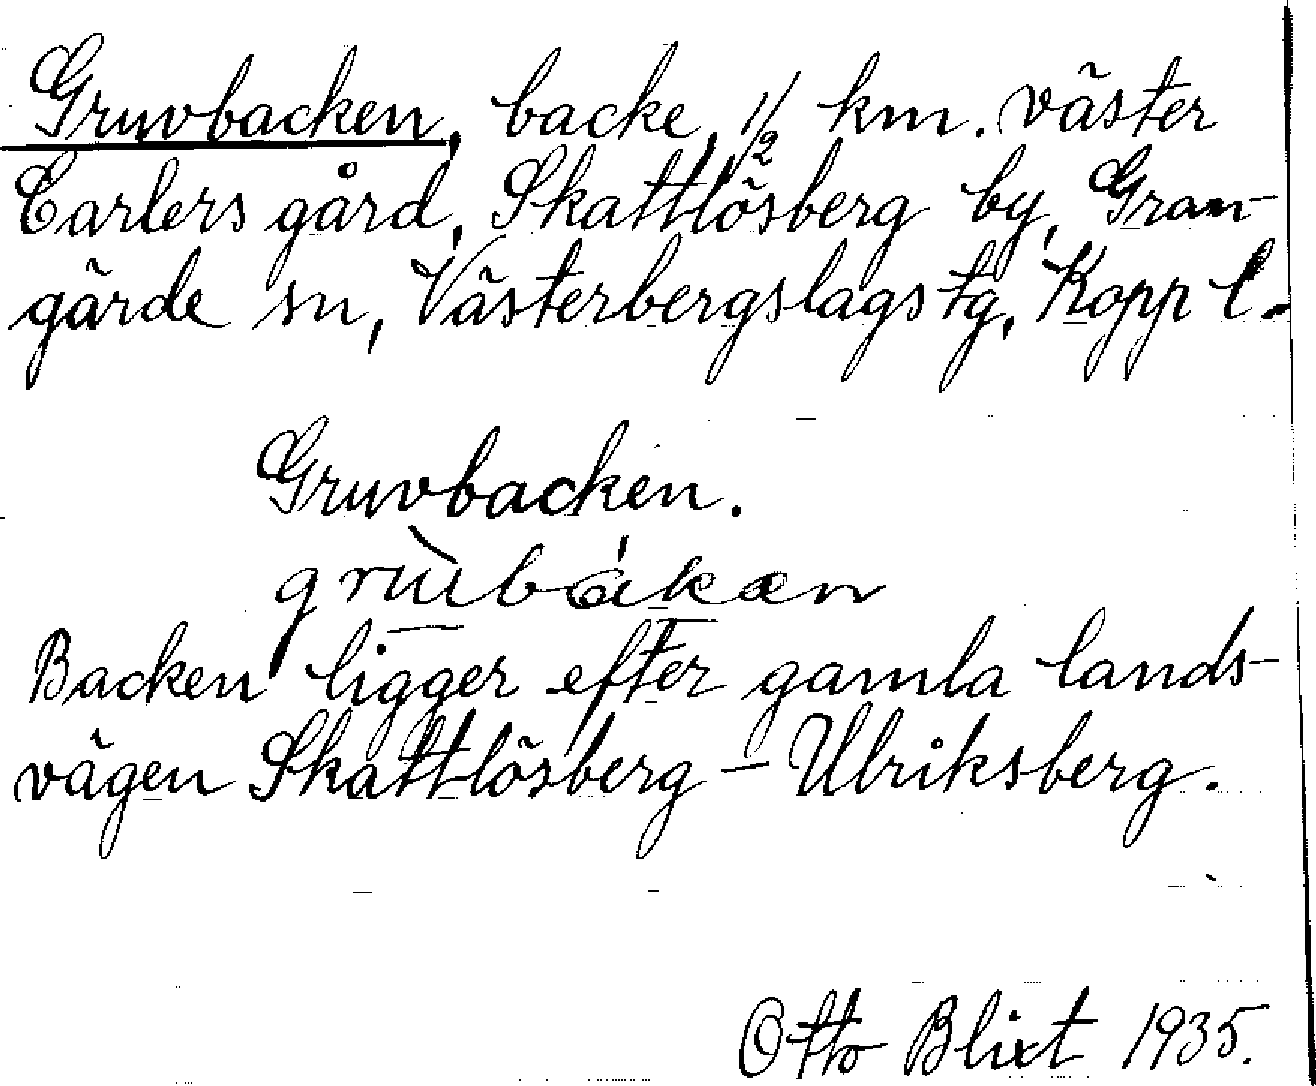 Gruvbacken, backe, 1/2 km. väster
Carlers gård, Skattlösberg by, Gran-
gärde sn, Västerbergslags tg, Kopp l.
Gruvbacken.
grùbákæn
Backen ligger efter gamla lands-
vägen Skattlösberg – Ulriksberg.
Otto Blixt 1935.